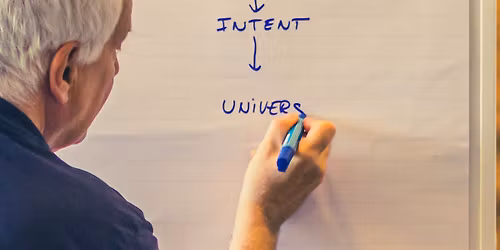 INTENT
UNIVERS